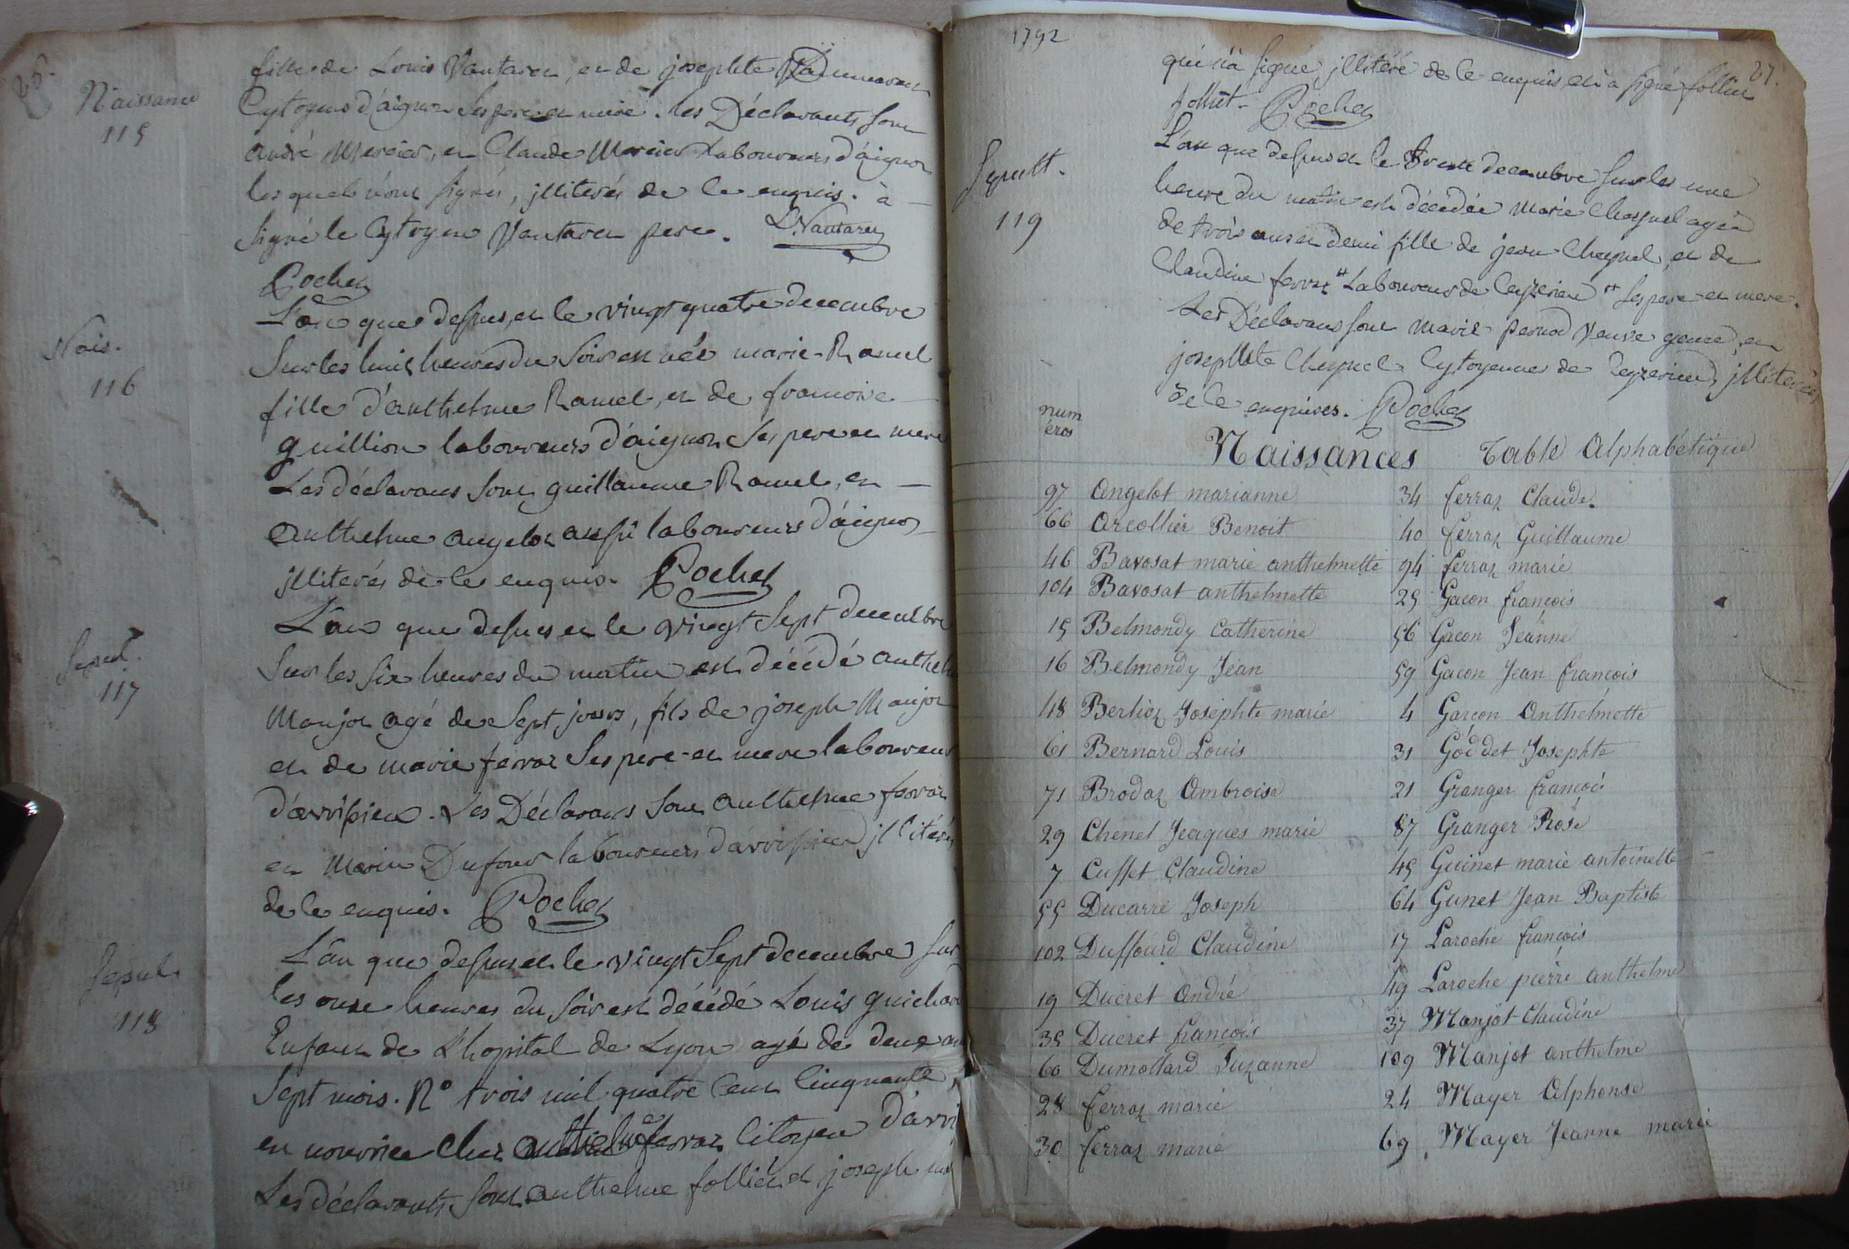 26.
Naissance
115
fille de Louis Vantaren, et de josephte
Cytoyens d'aignoz Ses pere et mere. les Déclarants sont
André Mercier, et Claude Mercier Laboureurs d'aignoz
les quels n'ont signés, jlliterés de ce enquis. à
signé le Cytoyen Vantaren pere. L. Vantaren
Pochet
Nais.
116
L'an que dessus, et le vingt quatre decembre
Sur les huit heures du soir est née marie Ramel
fille d'anthelme Ramel, et de francoise
guillion laboureurs d'aignoz Ses pere et mere
Les déclarans sont guillaume Ramel, et
anthelme angelot aussi laboureurs d'aignoz
jlliterés de ce enquis. Pochet
Sepul.
117
L'an que dessus et le vingt Sept decembre
Sur les six heures du matin est décédé anthel
Manjot agé de Sept jours, fils de joseph Manjot
et de marie ferraz Ses pere et mere laboureurs
d'avrissieu. Les Déclarans sont anthelme ferraz
et Marin Dufour laboureurs d'avrissieu jllitérés
de ce enquis. Pochet
Sepul.
118
L'an que dessus et le vingt Sept decembre Sur
les onze heures du soir est décédé Louis guichard
Enfant de L'hopital de Lyon agé de deux an
Sept mois. N° trois mil quatre cent Cinquante
en nourrice chez anthelme ferraz Citoyen d'avri
Les déclarants sont anthelme follliet et joseph
1792
27.
qui n'a signé jllitéré de ce enquis, et a signé folliet
folliet. Pochet
Sepult.
119
L'an que dessus et le trente decembre Sur les une
heure du matin est décédée Marie Cheynel agée
de trois ans et demi fille de jean Cheynel, et de
Claudine ferraz Laboureurs de Ceyzerieu Ses pere et mere.
Les Déclarans sont Marie pernod Veuve genod, et
josephte Cheynel Cytoyenne de Ceyzerieu, jlliterées
de ce enquises. Pochet
num
eros
Naissances Table Alphabétique
97 Angelot marianne
66 Arcollier Benoit
46 Bavosat marie anthelmette
104 Bavosat anthelmette
15 Belmondy Catherine
16 Belmondy Jean
48 Berlioz Josephte marie
61 Bernard Louis
71 Brodaz Ambroise
29 Chenet Jacques marie
7 Cuffet Claudine
55 Ducarre Joseph
102 Duffourd Claudine
19 Ducret André
35 Ducret françois
60 Dumollard Suzanne
28 ferraz marie
30 ferraz marie
34 ferraz Claude.
40 ferraz Guillaume
94 ferraz marie
25 Gacon françois
56 Gacon Jeanne
59 Gacon Jean françois
4 Garcon Anthelmette
31 Goddet Josephte
21 Granger françois
87 Granger Rose
45 Guinet marie antoinette
64 Gunet Jean Baptiste
17 Laroche françois
49 Laroche pierre anthelme
37 Manjot Claudine
109 Manjot anthelme
24 Mayer Alphonse
69 Mayer Jeanne marie